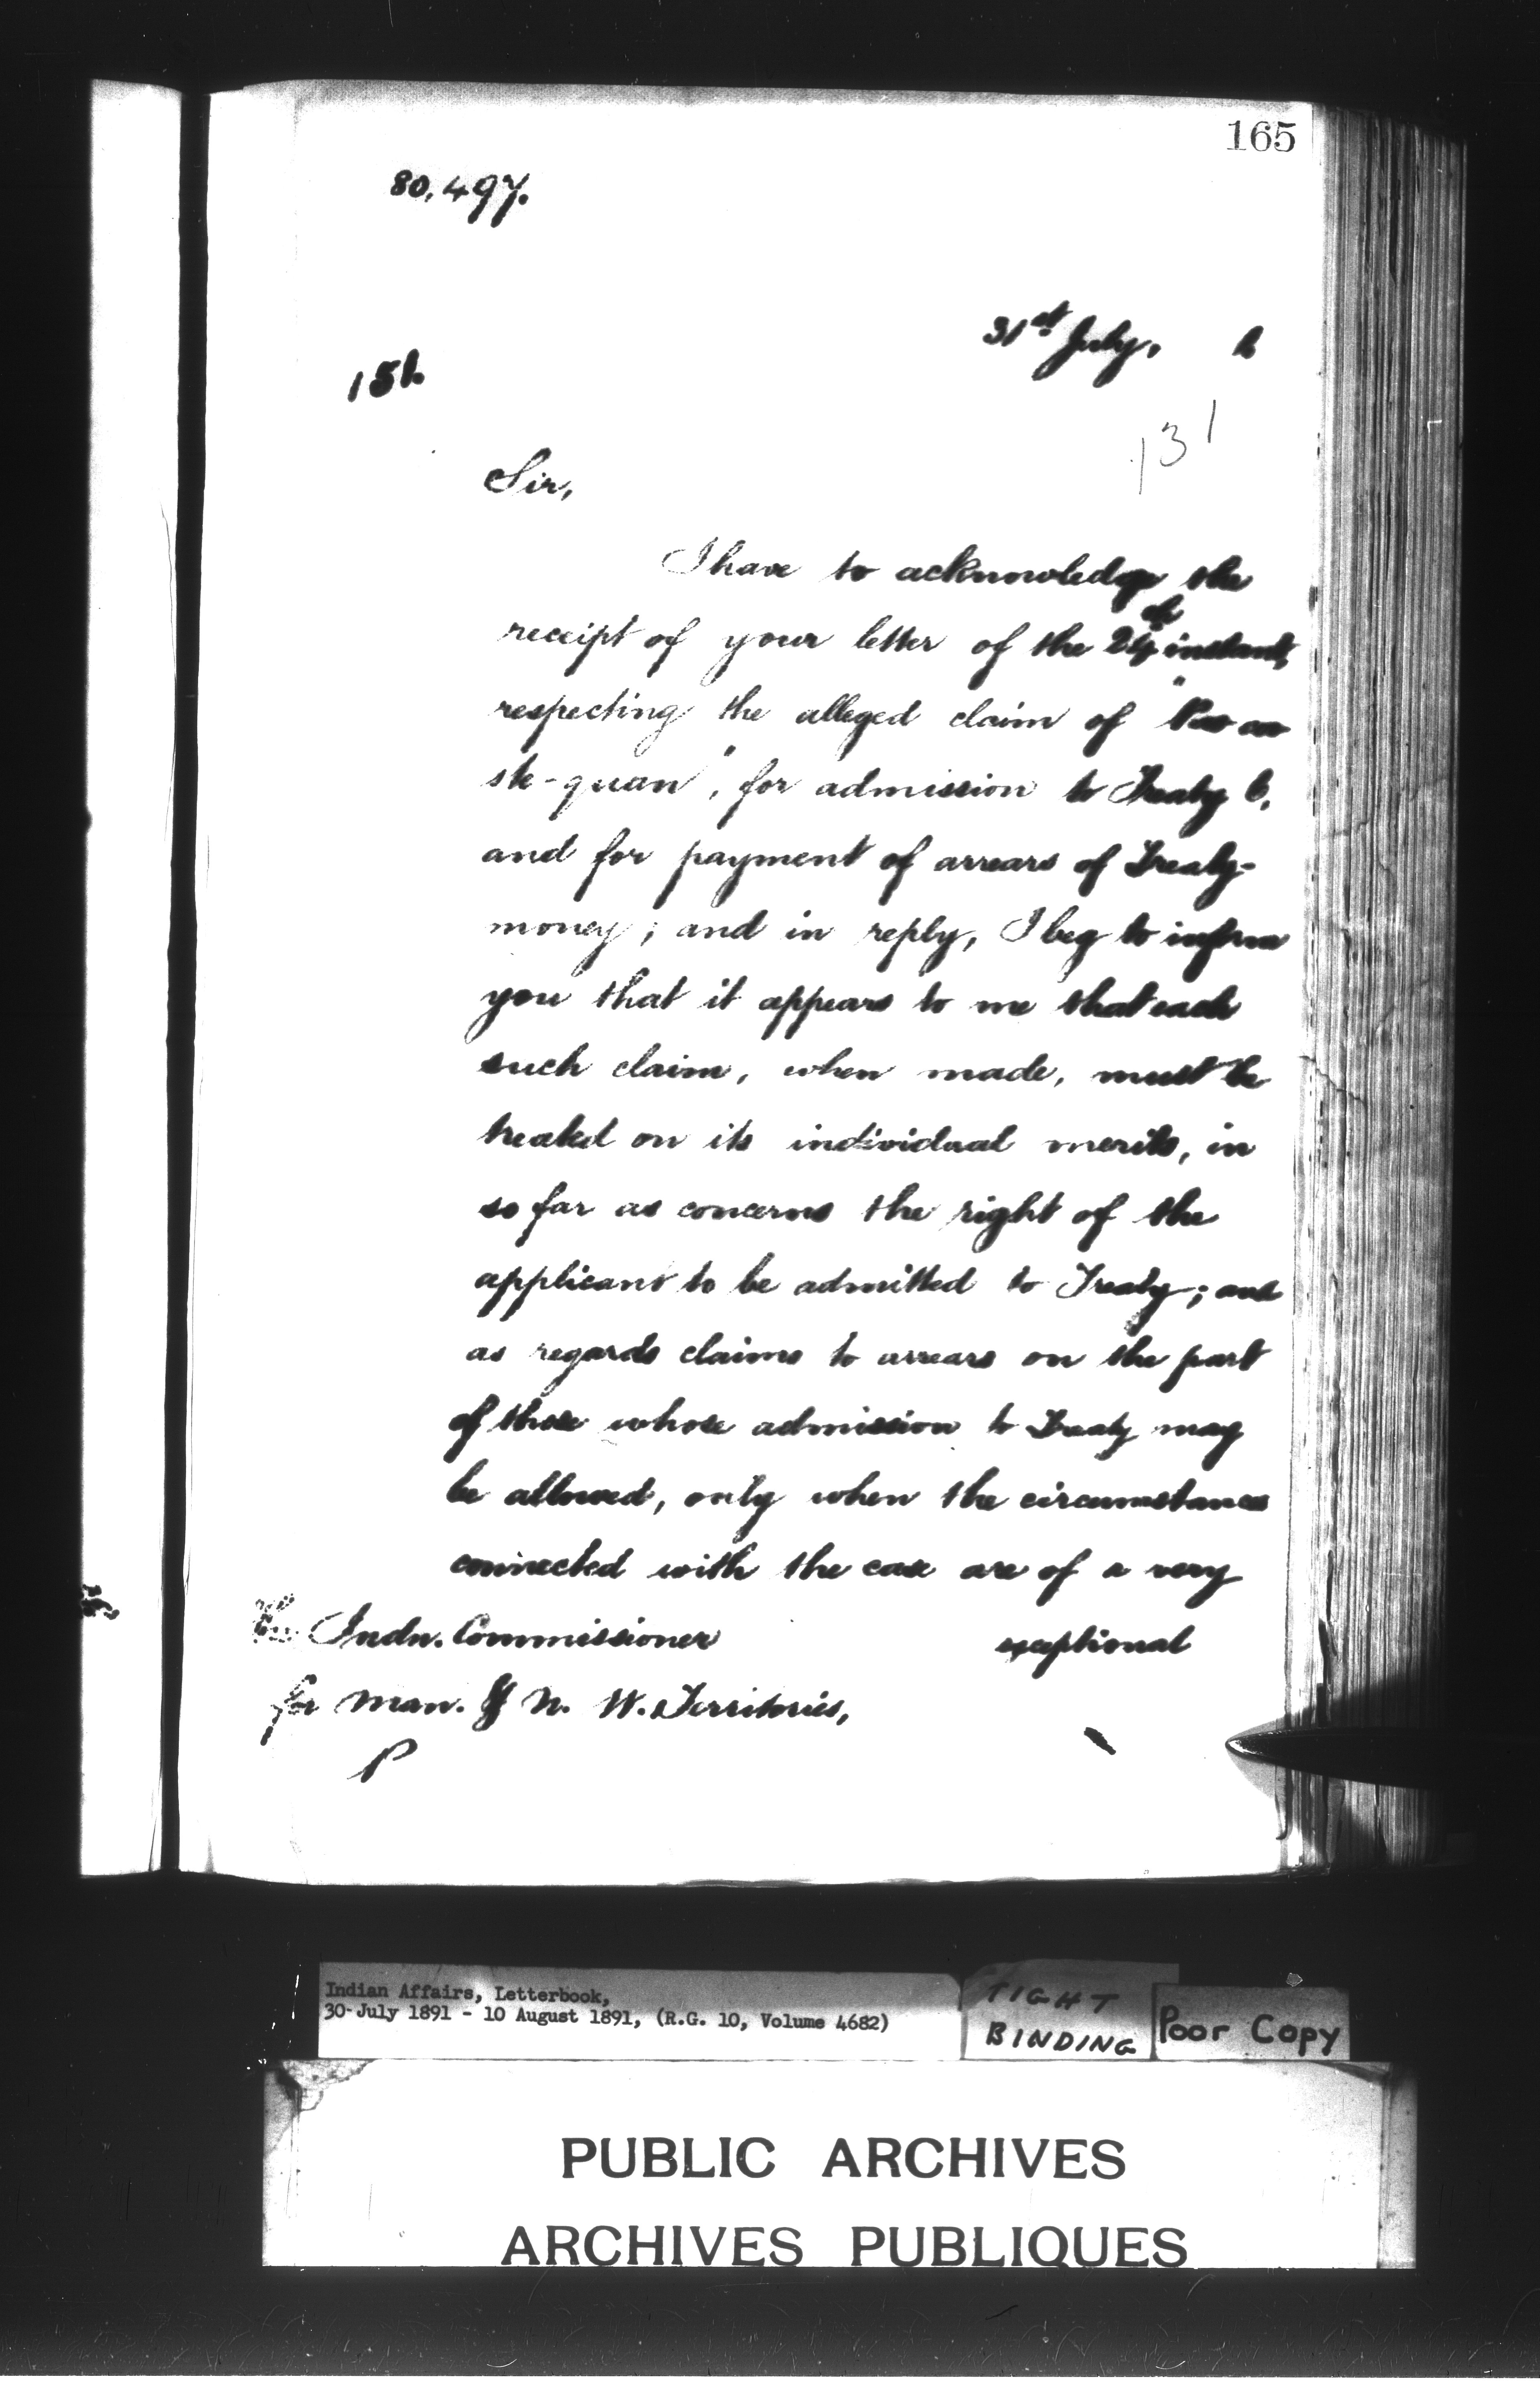 165
80,497.
31st July,
151.
131
Sir,
I have to acknowledge the
receipt of your letter of the 24th instant,
respecting the alleged claim of "
ste-quan", for admission to Treaty 6,
and for payment of arrears of Treaty-
money; and in reply, I beg to inform
you that it appears to me that each
such claim, when made, must be
treated on its individual merits, in
so far as concerns the right of the
applicant to be admitted to Treaty; and
as regards claims to arrears on the part
of those whose admission to Treaty may
be allowed, only when the circumstances
connected with the case are of a very
exceptional
The Indn. Commissioner
for Man. & N. W. Territories,
P
Indian Affairs, Letterbook,
30 July 1891 - 10 August 1891, (R.G. 10, Volume 4682)
TIGHT
BINDING
Poor Copy
PUBLIC ARCHIVES
ARCHIVES PUBLIQUES